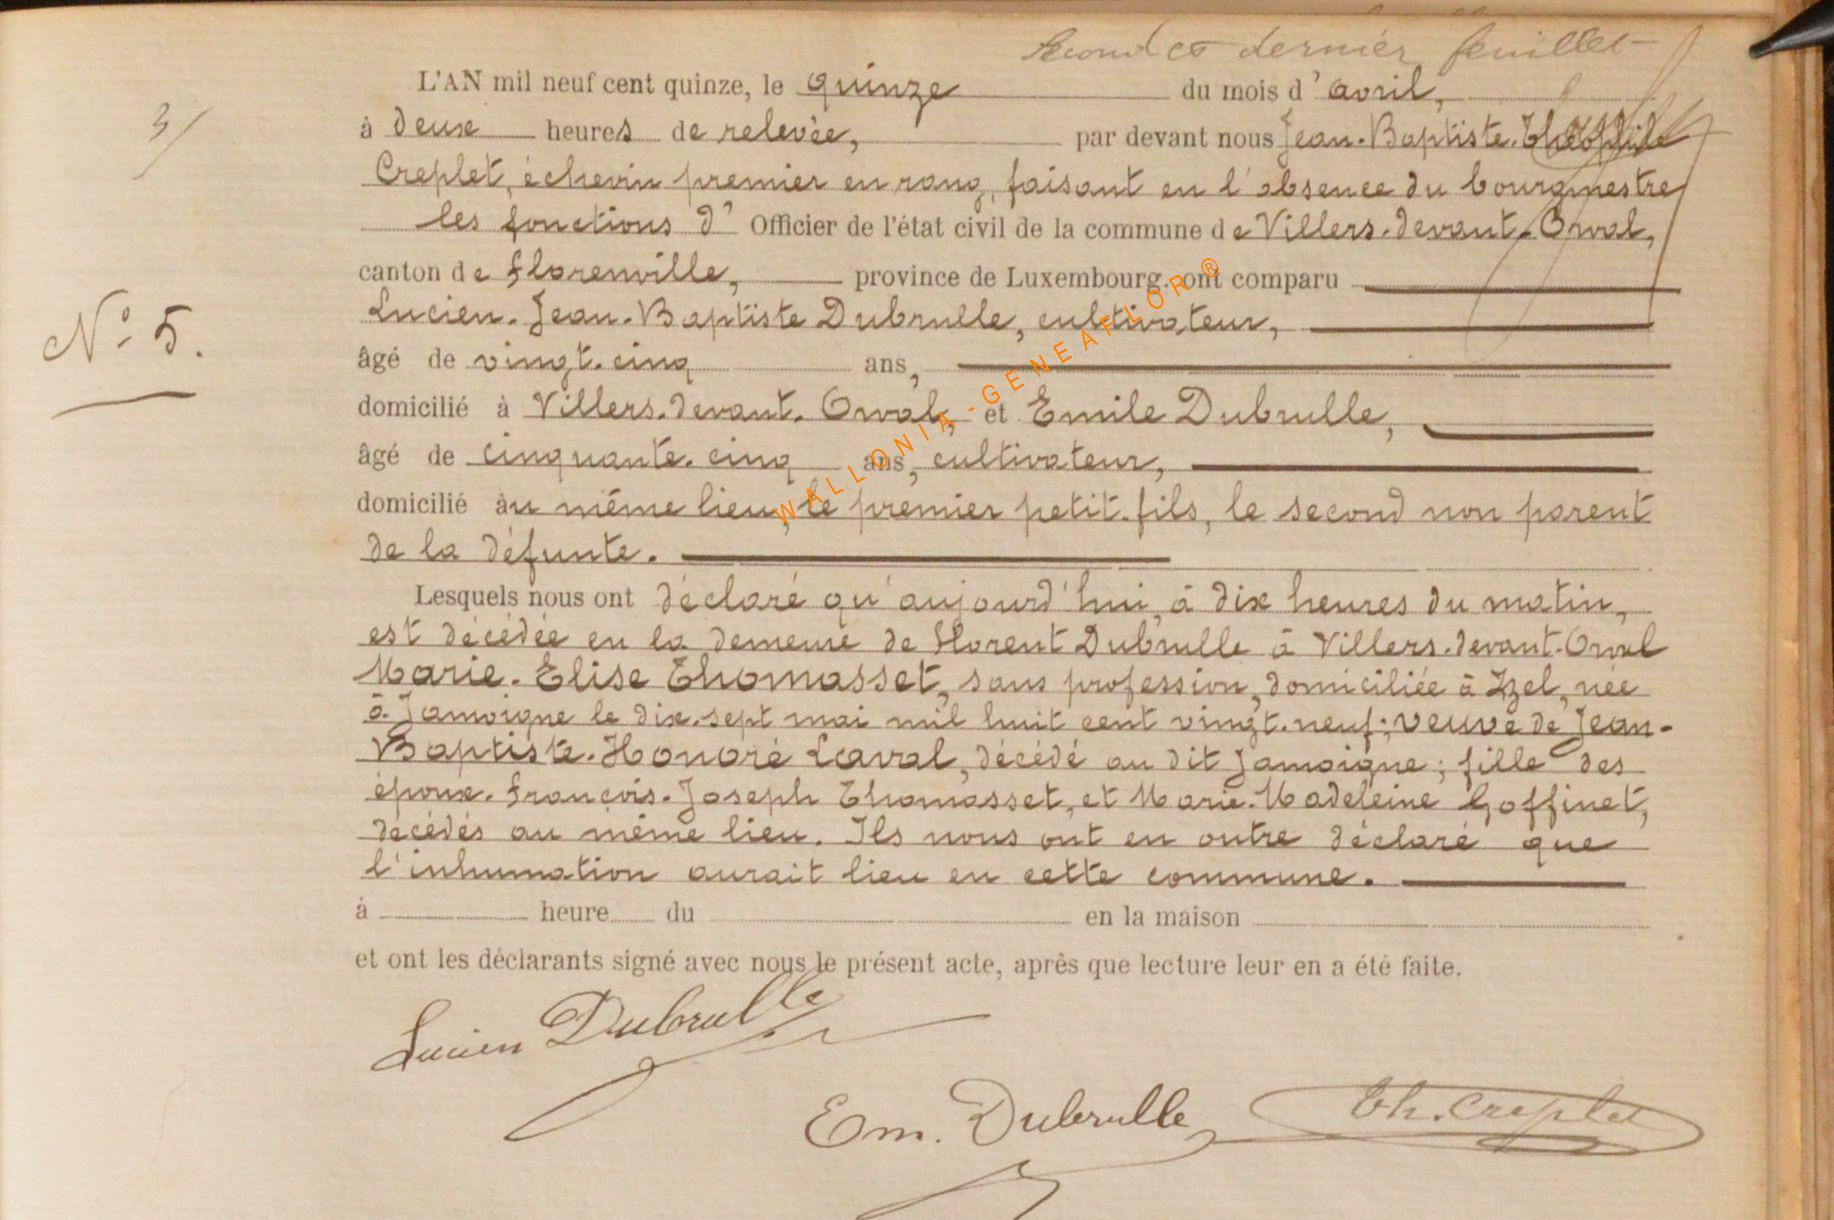 Second et dernier feuillet
L'AN mil neuf cent quinze, le quinze du mois d'avril,
3/
à deux heures de relevée, par devant nous Jean-Baptiste-Théophile
Creplet, échevin premier en rang, faisant en l'absence du bourgmestre
les fonctions d' Officier de l'état civil de la commune de Villers-devant-Orval,
canton de Florenville, province de Luxembourg. ont comparu
Lucien-Jean-Baptiste Dubrulle, cultivateur,
N° 5.
âgé de vingt-cinq ans,
domicilié à Villers-devant-Orval, et Emile Dubrulle,
âgé de cinquante-cinq ans, cultivateur,
domicilié au même lieu, le premier petit-fils, le second non parent
de la défunte.
Lesquels nous ont déclaré qu'aujourd'hui, à dix heures du matin,
est décédée en la demeure de Florent Dubrulle à Villers-devant-Orval
Marie-Elise Thomasset, sans profession, domiciliée à Izel, née
à Jamoigne le dix-sept mai mil huit cent vingt-neuf; veuve de Jean-
Baptiste-Honoré Laval, décédé au dit Jamoigne; fille des
époux François-Joseph Thomasset, et Marie-Madeleine Goffinet,
décédés au même lieu. Ils nous ont en outre déclaré que
l'inhumation aurait lieu en cette commune.
à heure du en la maison
et ont les déclarants signé avec nous le présent acte, après que lecture leur en a été faite.
Lucien Dubrulle
Em. Dubrulle Th. Creplet
WALLONIA-GENEAFLOR ®